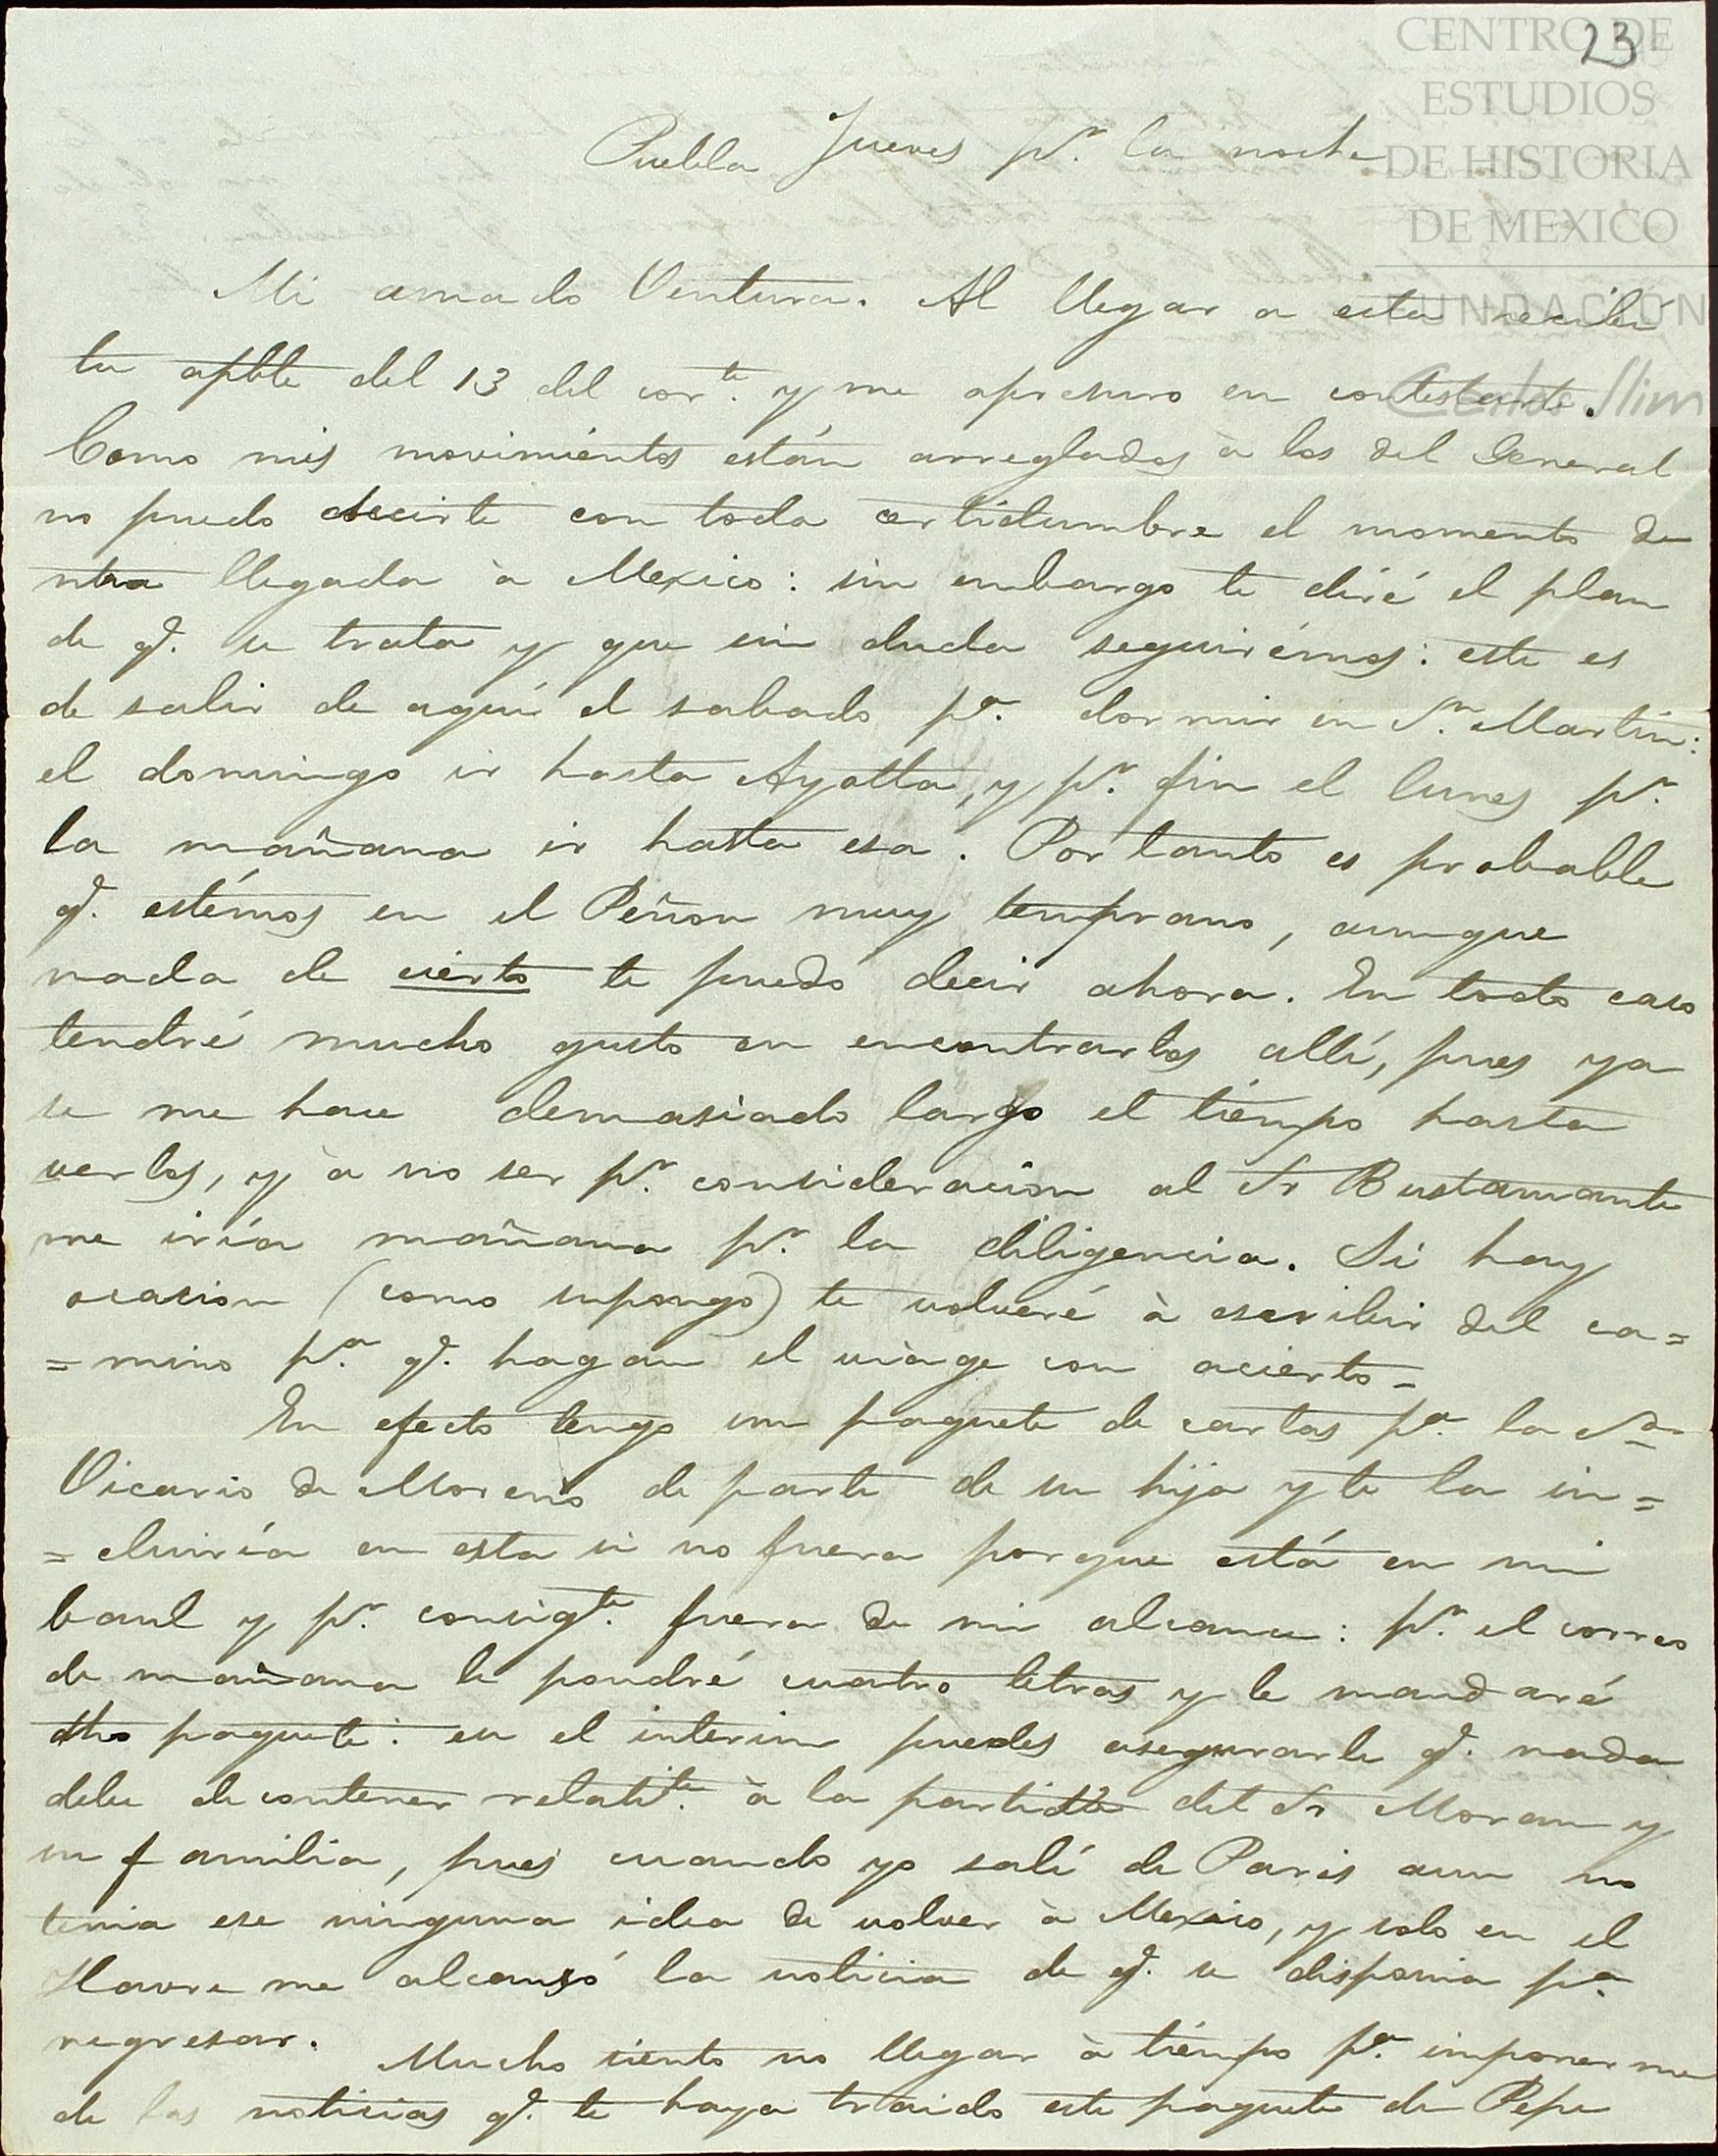 23
CENTRO DE
ESTUDIOS
DE HISTORIA
DE MEXICO
FUNDACIÓN
Carlos Slim
Puebla Jueves pr. la noche
Mi amado Ventura. Al llegar a esta recibí
tu apble del 13 del corte. y me apresuro en contestarte.
Como mis movimiéntos están arreglados à los del General
no puedo decirte con toda certidumbre el momento de
ntra llegada à Mexico: sin embargo te diré el plan
de q. se trata y que sin duda seguirémos: este es
de salir de aquí el sabado pa. dormir en Sn. Martin:
el domingo ir hasta Ayotla, y pr. fin el lunes pr.
la mañana ir hasta esa. Por tanto es probable
q. estémos en el Peñon muy temprano, aunque
nada de cierto te puedo decir ahora. En todo caso
tendré mucho gusto en encontrarlos allí, pues ya
se me hace demasiado largo el tiémpo hasta
verlos, y à no ser pr. consideracion al Sr Bustamante
me iría mañana pr. la diligencia. Si hay
ocasion (como supongo) te volveré à escribir del ca=
=mino pa. q. hagan el viàge con acierto-
En efecto tengo un paquete de cartas pa. la Sra
Vicario de Moreno de parte de su hijo y te la in=
=cluiría en esta si no fuera porque está en mi
baul y pr. consigte. fuera de mi alcance: pr. el correo
de mañana le pondré cuatro letras y le mandaré
dho paquete: en el interin puedes asegurarle q. nada
debe de contener relatite. à la partida del Sr Moran y
su familia, pues cuando yo salí de Paris aun no
tenia ese ninguna idea de volver à Mexico, y solo en el
Havre me alcanzó la noticia de q. se disponia pa.
regresar. Mucho siento no llegar à tiémpo pa. imponerme
de las noticias q. te haya traido este paquete de Pepe